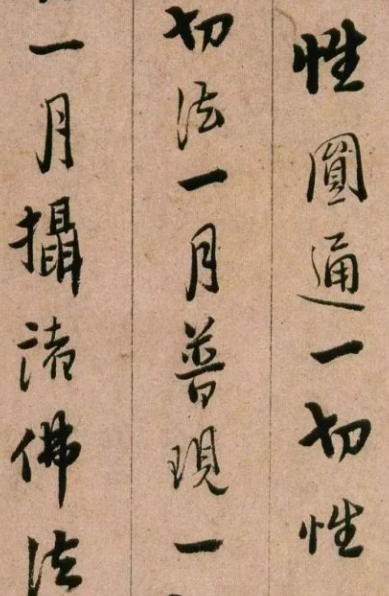 性圓通一切性
切法一月普現一
一月攝諸佛法